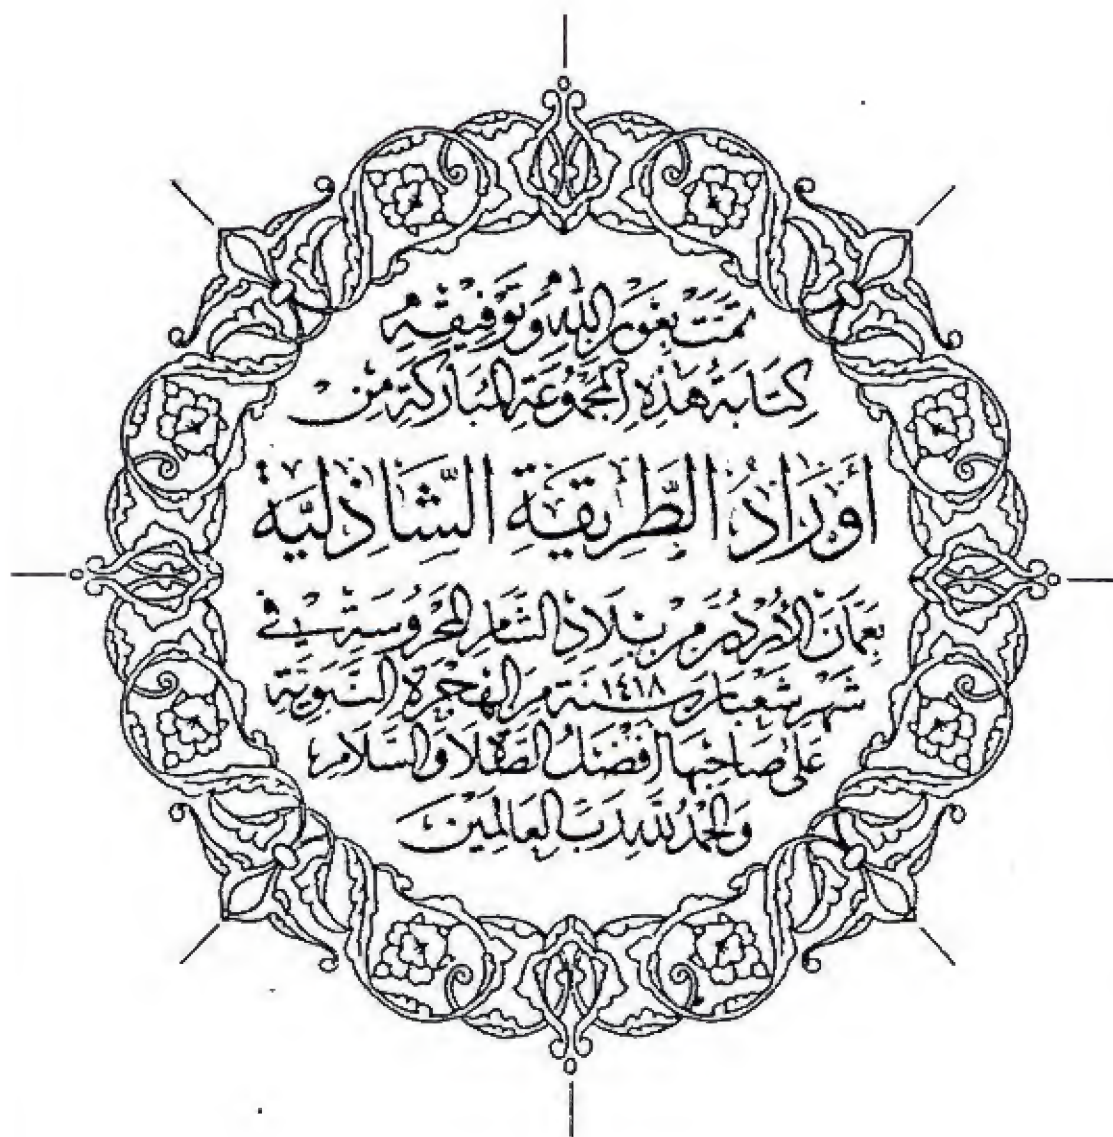 تَمَّتْ بِعَوْنِ اللهِ وَتَوْفِيقِهِ
كِتَابَةُ هٰذِهِ الْمَجْمُوعَةِ الْمُبَارَكَةِ مِنْ
أَوْرَادُ الطَّرِيقَةِ الشَّاذِلِيَّة
بِعَمَّانَ الْأُرْدُنِّ مِنْ بِلَادِ الشَّامِ الْمَحْرُوسَةِ فِي
شَهْرِ شَعْبَانَ سَنَةَ ١٤١٨ مِنَ الْهِجْرَةِ النَّبَوِيَّةِ
عَلَى صَاحِبِهَا أَفْضَلُ الصَّلَاةِ وَالسَّلَامِ
وَالْحَمْدُ لِلّٰهِ رَبِّ الْعَالَمِينَ